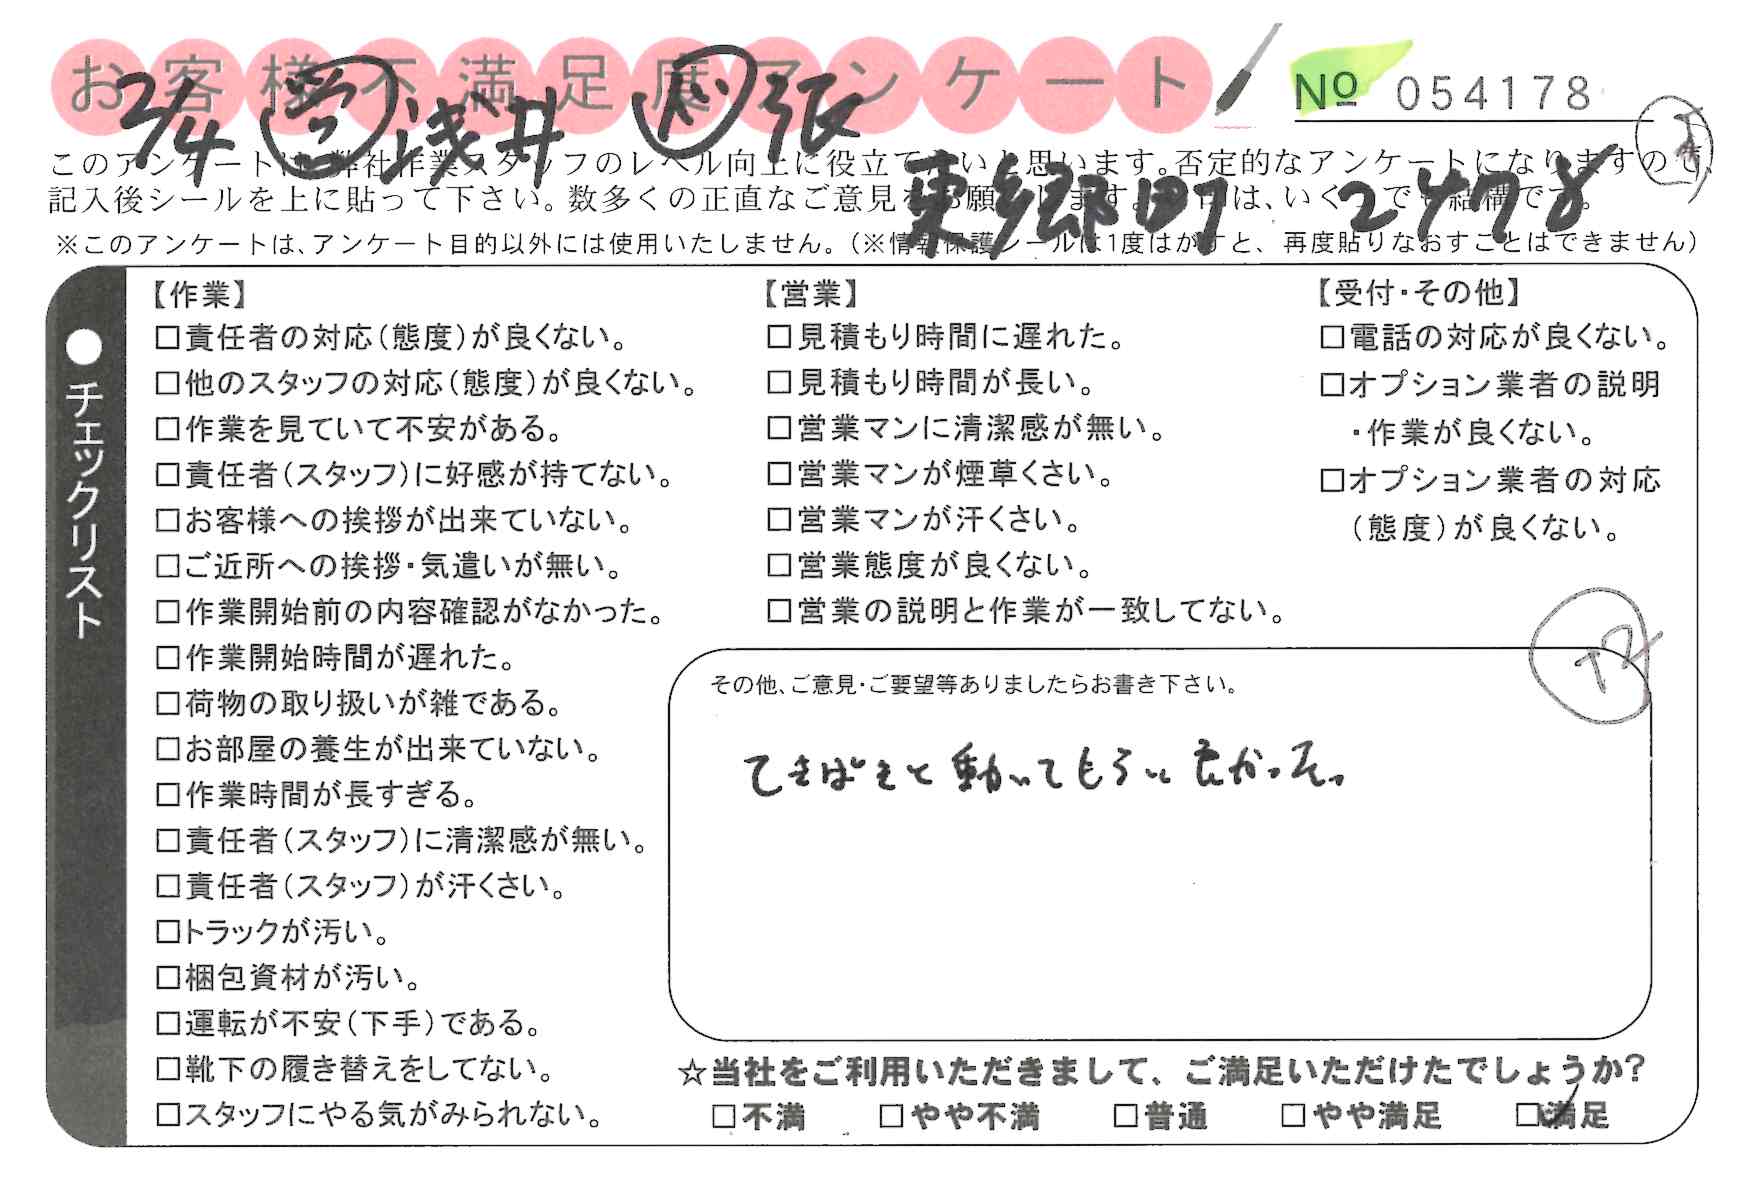 お客様不満足度アンケート
No 054178
2/4 営 浅井 張
東郷町 2478
このアンケートは、弊社作業スタッフのレベル向上に役立てたいと思います。否定的なアンケートになりますので、
記入後シールを上に貼って下さい。数多くの正直なご意見をお願いします。は、いくつでも結構です。
※このアンケートは、アンケート目的以外には使用いたしません。(※情報保護シールは1度はがすと、再度貼りなおすことはできません)
●チェックリスト
【作業】
□責任者の対応(態度)が良くない。
□他のスタッフの対応(態度)が良くない。
□作業を見ていて不安がある。
□責任者(スタッフ)に好感が持てない。
□お客様への挨拶が出来ていない。
□ご近所への挨拶・気遣いが無い。
□作業開始前の内容確認がなかった。
□作業開始時間が遅れた。
□荷物の取り扱いが雑である。
□お部屋の養生が出来ていない。
□作業時間が長すぎる。
□責任者(スタッフ)に清潔感が無い。
□責任者(スタッフ)が汗くさい。
□トラックが汚い。
□梱包資材が汚い。
□運転が不安(下手)である。
□靴下の履き替えをしてない。
□スタッフにやる気がみられない。
【営業】
□見積もり時間に遅れた。
□見積もり時間が長い。
□営業マンに清潔感が無い。
□営業マンが煙草くさい。
□営業マンが汗くさい。
□営業態度が良くない。
□営業の説明と作業が一致してない。
【受付・その他】
□電話の対応が良くない。
□オプション業者の説明
・作業が良くない。
□オプション業者の対応
(態度)が良くない。
その他、ご意見・ご要望等ありましたらお書き下さい。
てきぱきと動いてもらい良かった。
☆当社をご利用いただきまして、ご満足いただけたでしょうか?
□不満 □やや不満 □普通 □やや満足 □満足